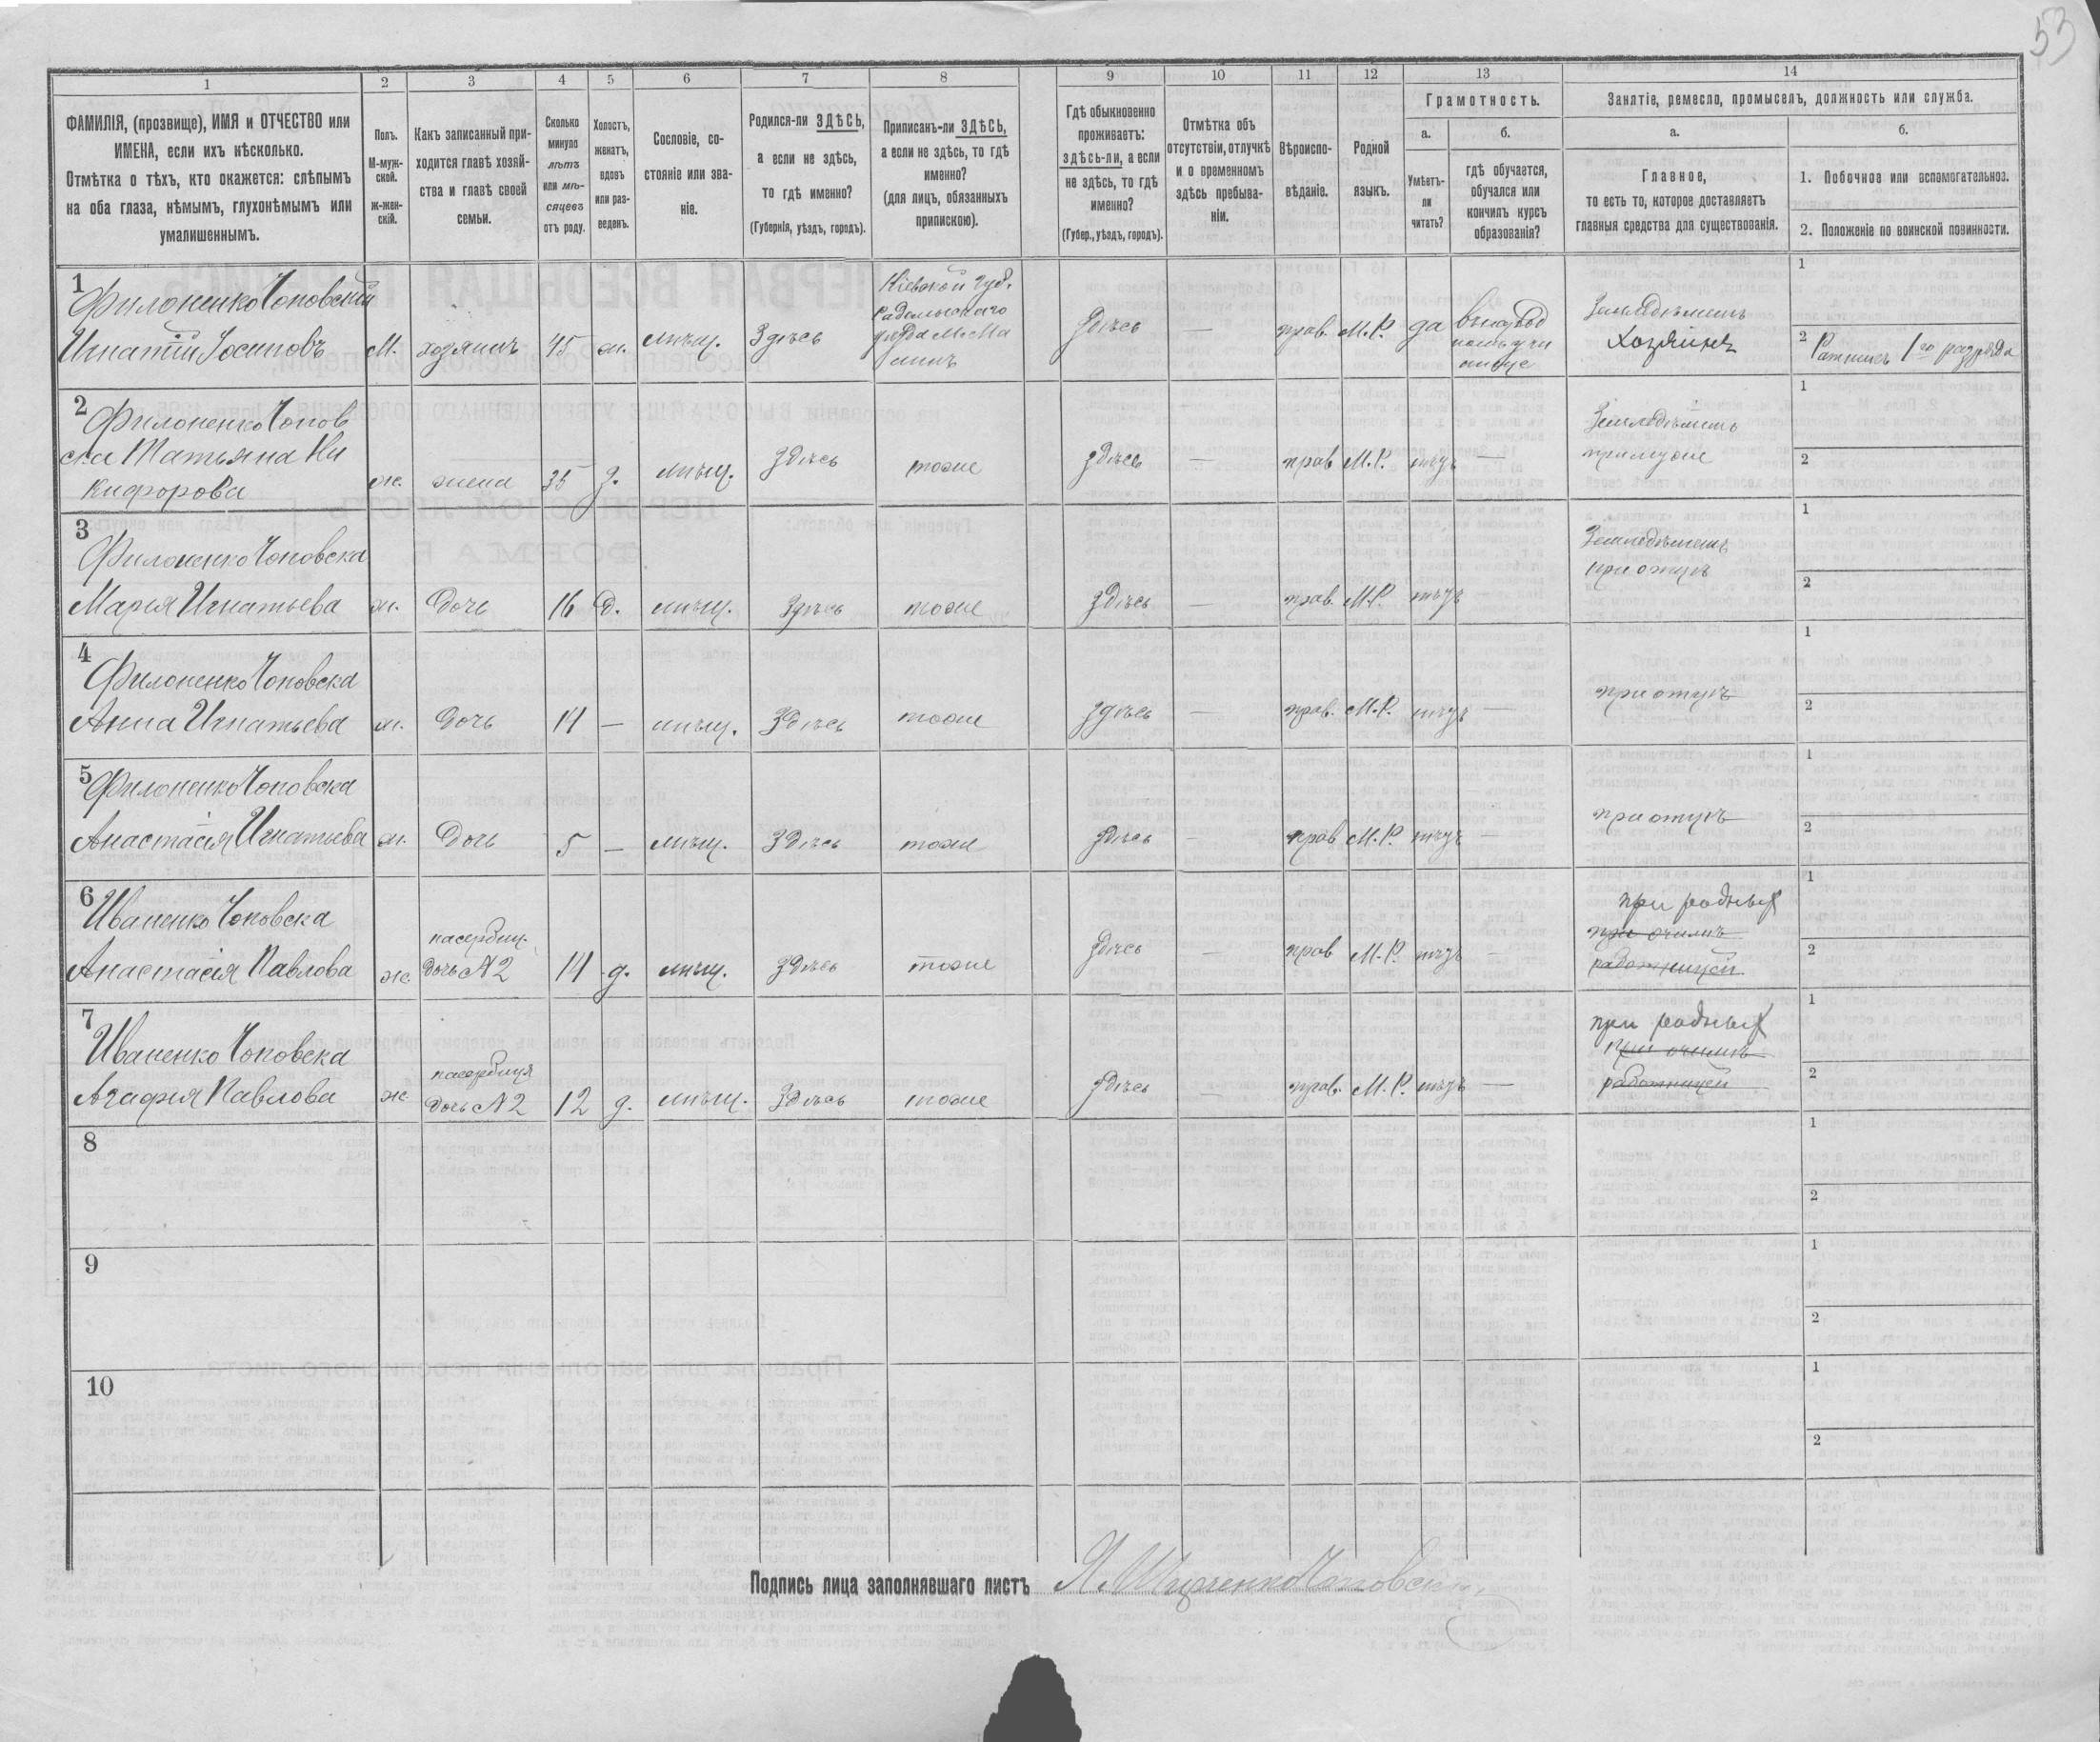 53
1 2 3 4 5 6 7 8 9 10 11 12 13 14
ФАМИЛІЯ, (прозвище), ИМЯ и ОТЧЕСТВО или
ИМЕНА, если ихъ нѣсколько.
Отмѣтка о тѣхъ, кто окажется: слѣпымъ
на оба глаза, нѣмымъ, глухонѣмымъ или
умалишеннымъ.
Полъ.
М-муж-
ской.
ж-жен-
скій.
Какъ записанный при-
ходится главѣ хозяй-
ства и главѣ своей
семьи.
Сколько
минуло
лѣтъ
или мѣ-
сяцевъ
отъ роду.
Холостъ,
женатъ,
вдовъ
или раз-
веденъ.
Сословіе, со-
стояніе или зва-
ніе.
Родился-ли ЗДѢСЬ,
а если не здѣсь,
то гдѣ именно?
(Губернія, уѣздъ, городъ).
Приписанъ-ли ЗДѢСЬ,
а если не здѣсь, то гдѣ
именно?
(для лицъ, обязанныхъ
припискою).
Гдѣ обыкновенно
проживаетъ:
здѣсь-ли, а если
не здѣсь, то гдѣ
именно?
(Губер., уѣздъ, городъ).
Отмѣтка объ
отсутствіи, отлучкѣ
и о временномъ
здѣсь пребыва-
ніи.
Вѣроиспо-
вѣданіе.
Родной
языкъ.
Грамотность.
а.
Умѣетъ-
ли
читать?
б.
гдѣ обучается,
обучался или
кончилъ курсъ
образованія?
Занятіе, ремесло, промыселъ, должность или служба.
а.
Главное,
то есть то, которое доставляетъ
главныя средства для существованія.
б.
1. Побочное или вспомогательное.
2. Положеніе по воинской повинности.
1
Филоненко Чоповскій
Игнатій Іосиповъ
М. хозяинъ 45 ж. мѣщ. Здѣсь
Кіевской губ.
Радомысскаго
уѣзда м. Ма
линъ
здѣсь — прав. М.Р. да
въ народ
номъ учи
лище
Земледѣлецъ
Хозяинъ
1
2 Ратникъ 1го разряда
2
Филоненко Чопов
ска Татьяна Ни
кифорова
ж. жена 35 з. мѣщ. здѣсь тоже здѣсь — прав М.Р. нѣтъ —
Земледѣлецъ
при мужѣ
1
2
3
Филоненко Чоповска
Марія Игнатьева
ж. дочь 16 д. мѣщ. здѣсь тоже здѣсь — прав. М.Р. нѣтъ —
Земледѣлецъ
при отцѣ
1
2
4
Филоненко Чоповска
Анна Игнатьева
ж. дочь 14 — мѣщ. Здѣсь тоже здѣсь — прав. М.Р. нѣтъ —
при отцѣ
1
2
5
Филоненко Чоповска
Анастасія Игнатьева
ж. дочь 5 — мѣщ. Здѣсь тоже здѣсь — прав М.Р. нѣтъ —
при отцѣ
1
2
6
Иваненко Чоповска
Анастасія Павлова
ж.
пасербиц.
дочь №2
14 д. мѣщ. здѣсь тоже здѣсь — прав М.Р. нѣтъ —
при родныхъ
при отчимѣ
работницей
1
2
7
Иваненко Чоповска
Агафія Павлова
ж
пасербиця
дочь №2
12 д. мѣщ. здѣсь тоже здѣсь — прав. М.Р. нѣтъ —
при родныхъ
при отчимѣ
работницей
1
2
8
1
2
9
1
2
10
1
2
Подпись лица заполнявшаго листъ